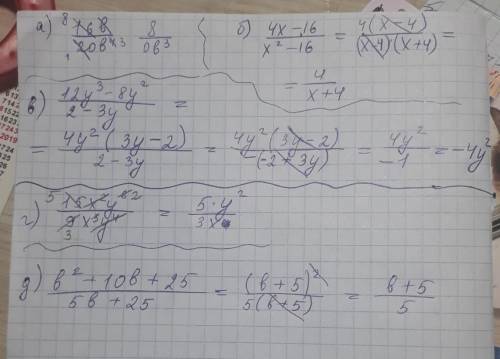 а) 8 16b / 1 20b⁴ 3 8 / 0b³ { б) (4x - 16) / (x² - 16) = 4(x - 4) / (x-4)(x+4) =
= 4 / (x+4)
в) (12y³ - 8y²) / (2 - 3y) =
= 4y²(3y - 2) / (2 - 3y) = 4y²(3y - 2) / -(-2 + 3y) = 4y² / -1 = -4y²
= 5·y² / 3x
д) (b² + 10b + 25) / (5b + 25) = (b + 5)² / 5(b+5) = (b + 5) / 5